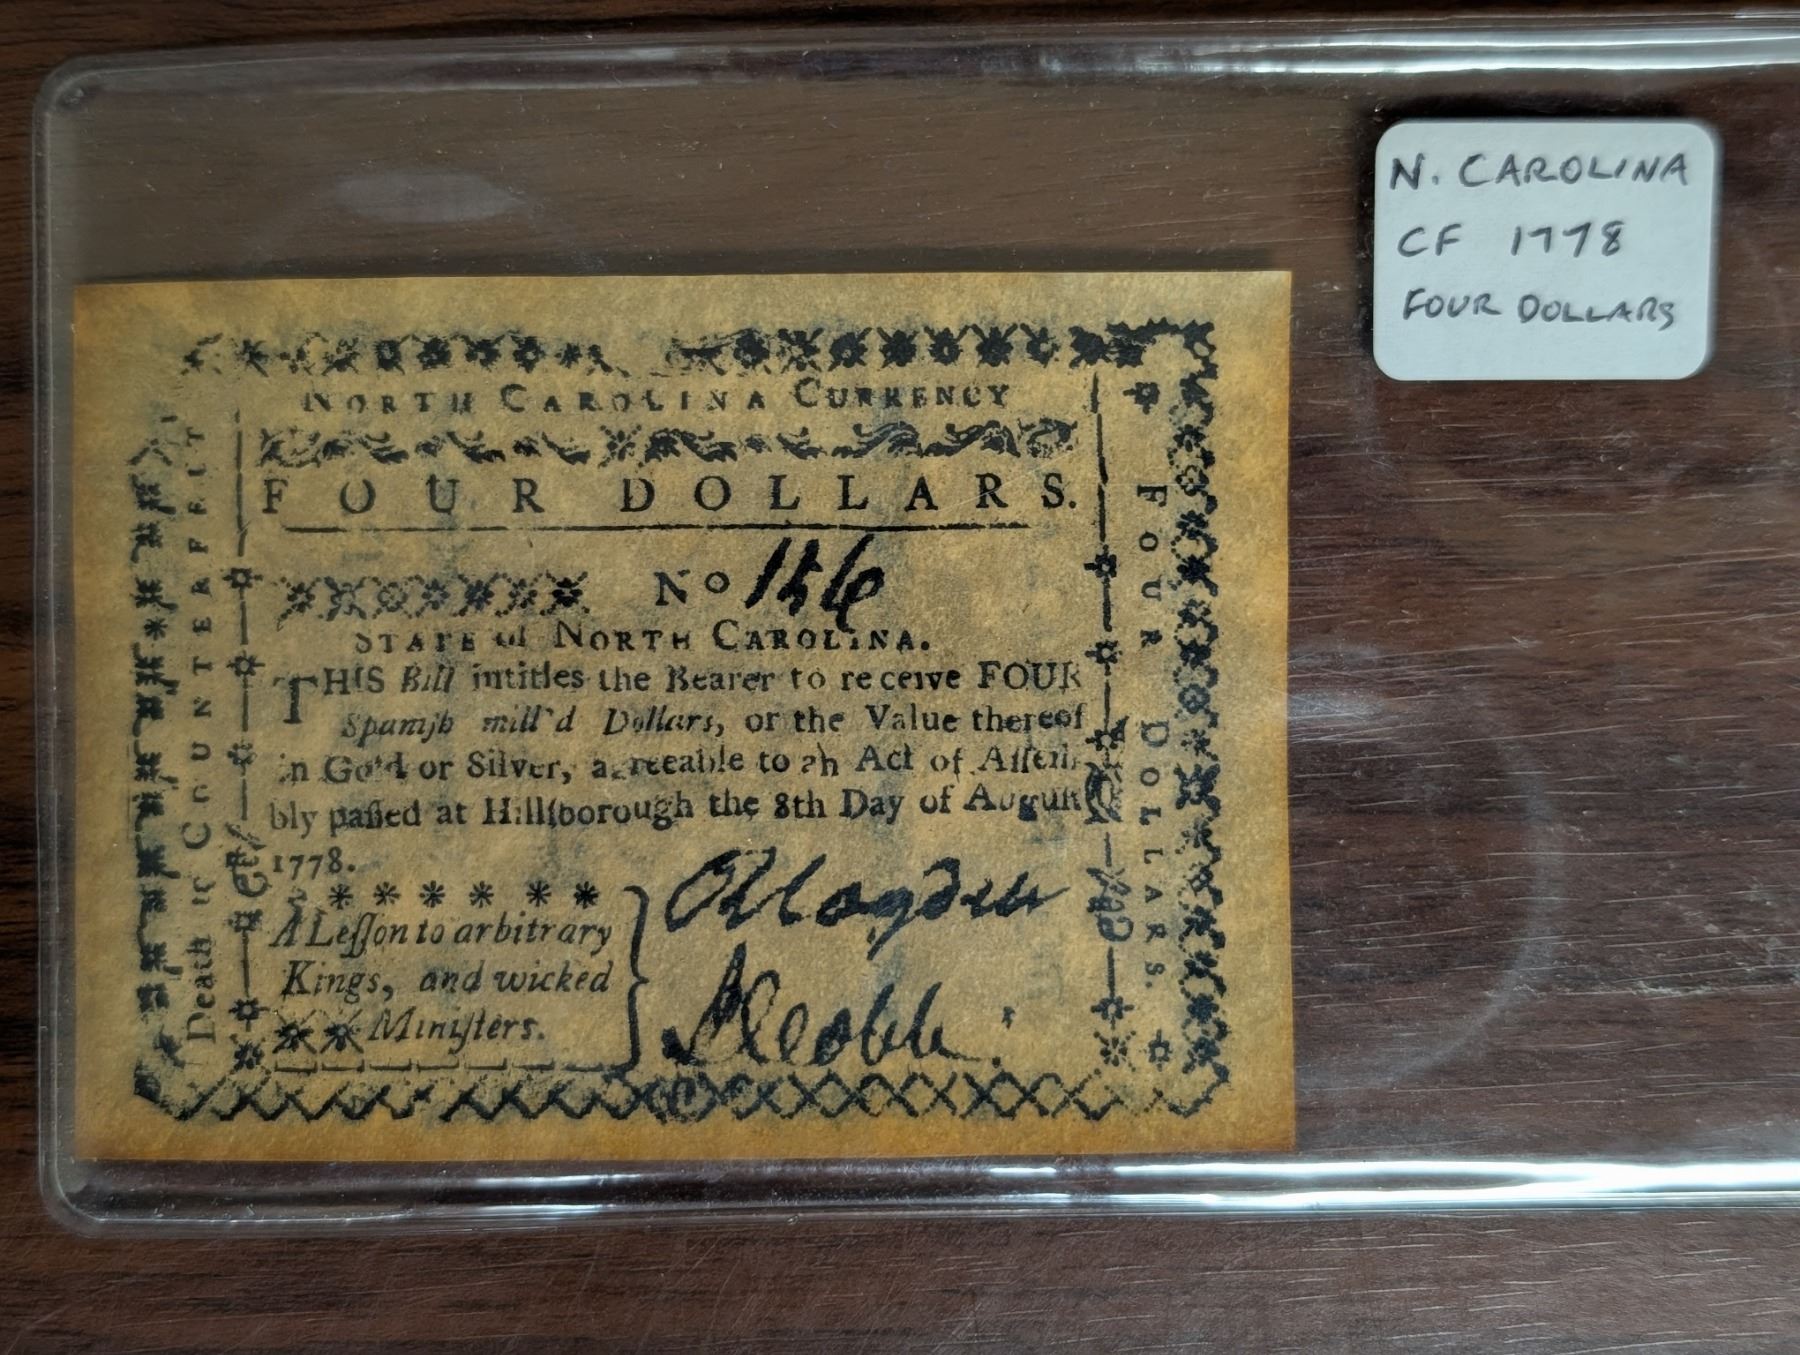 NORTH CAROLINA CURRENCY
FOUR DOLLARS.
No 156
STATE of NORTH CAROLINA.
THIS Bill intitles the Bearer to receive FOUR
Spaniſh mill'd Dollars, or the Value thereof
in Gold or Silver, agreeable to an Act of Aſſem-
bly paſſed at Hillſborough the 8th Day of Auguſt
1778.
A Leſſon to arbitrary
Kings, and wicked
Miniſters.
Death to COUNTERFEIT
FOUR DOLLARS.
N. CAROLINA
CF 1778
FOUR DOLLARS